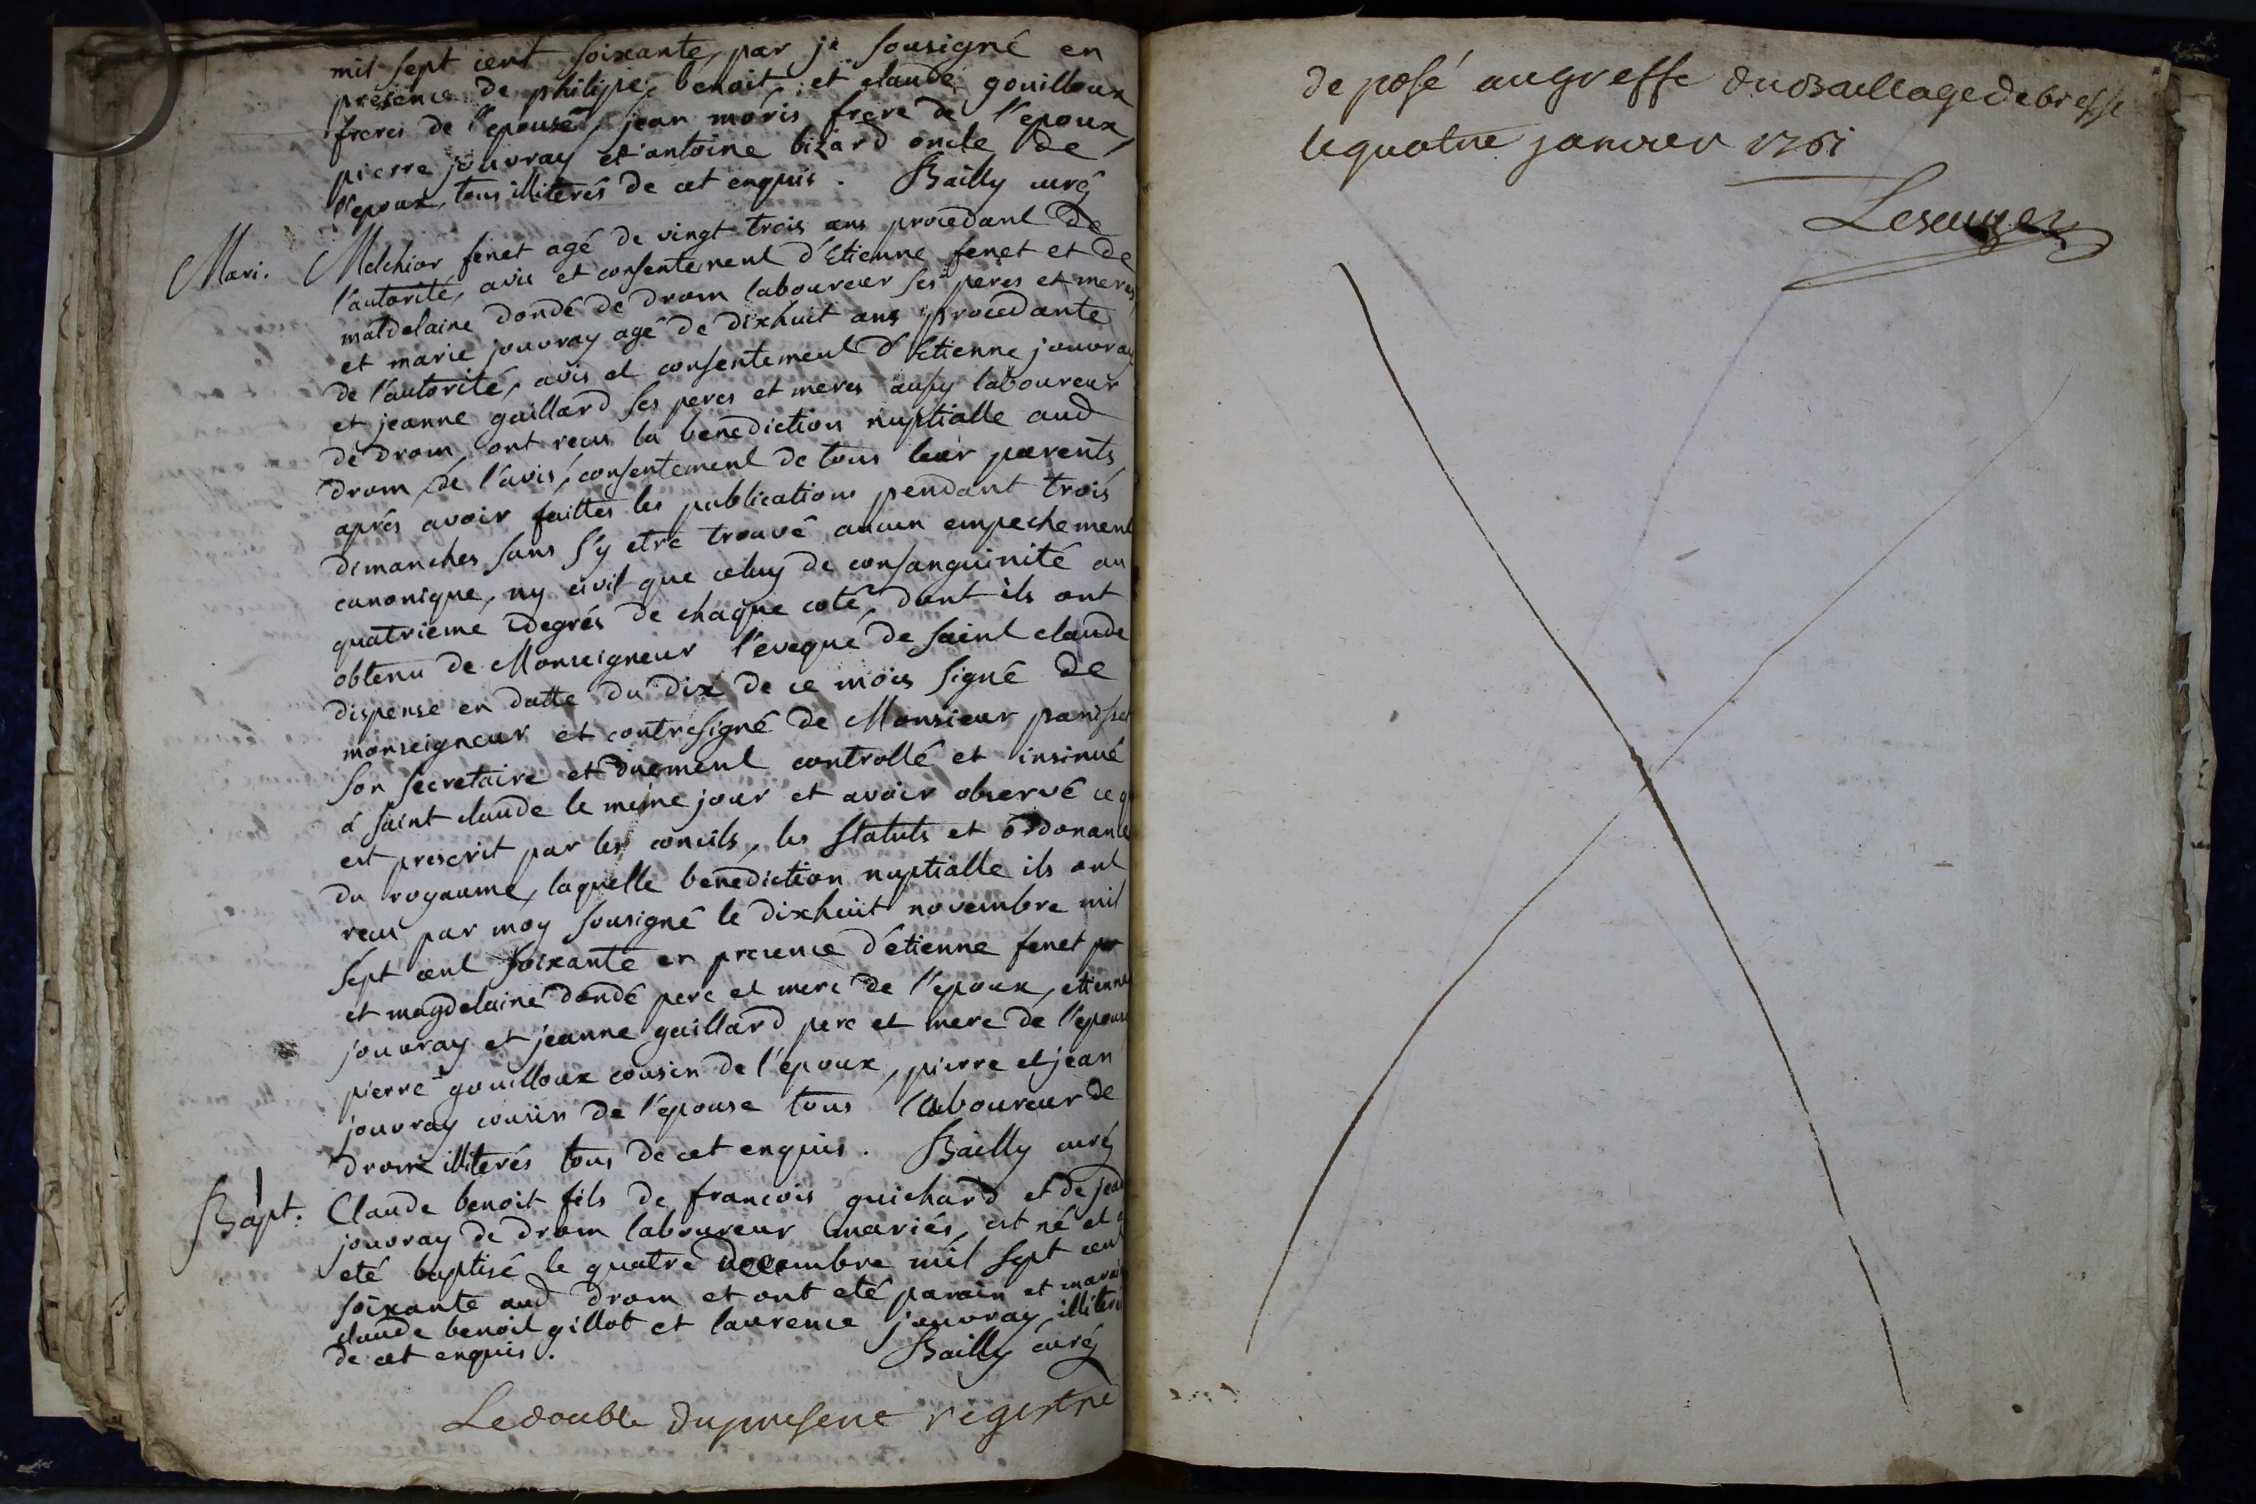 mil sept cent soixante, par je sousigné en
presence de philipe, benoit, et claude gouilloux
freres de l'epouse, jean moris frere de l'epoux,
pierre jouvray et antoine bizard oncle de
l'epoux, tous illiterés de cet enquis. Bailly curé
Mari. Melchior fenet agé de vingt trois ans procedant de
l'autorité, avis et consentement d'Etienne fenet et de
matdelaine dondé de drom laboureur ses peres et meres,
et marie jouvray agé de dixhuit ans procedante
de l'autorité, avis et consentement d'Etienne jouvray
et jeanne gaillard ses peres et meres aussy laboureur
de drom, ont recus la benediction nuptialle aud
drom, de l'avis, consentement de tous leur parents,
aprés avoir faittes les publications pendant trois
dimanches sans s'y etre trouvé aucun empechement
canonique, ny civil que celuy de consanguinité au
quatrieme degrés de chaque coté, dont ils ont
obtenu de Monseigneur l'eveque de saint claude
dispense en datte du dix de ce mois signé de
monseigneur et contresigné de Monsieur panisset
son secretaire et duement controllé et insinué
á saint claude le même jour et avoir observé ce q
est prescrit par les concils, les statuts et ordonance
du royaume, laquelle benediction nuptialle ils ont
recus par moy sousigné le dixhuit novembre mil
sept cent soixante en presence d'étienne fenet
et magdelaine dondé pere et mere de l'epoux, etienne
jouvray et jeanne gaillard pere et mere de l'epouse
pierre gouilloux cousin de l'epoux, pierre et jean
jouvray cousin de l'epouse tous laboureur de
drom illiterés tous de cet enquis. Bailly curé
Bapt. Claude benoit fils de francois guichard et de
jouvray de drom laboureur mariés, est né et a
eté baptisé le quatre decembre mil sept cent
soixante aud drom et ont eté parain et marai
claude benoit gillot et laurence jouvray illiteré
de cet enquis. Bailly curé
Le double du present registre
de posé au greffe du Baillage de bresse
le quatre janvier 1761